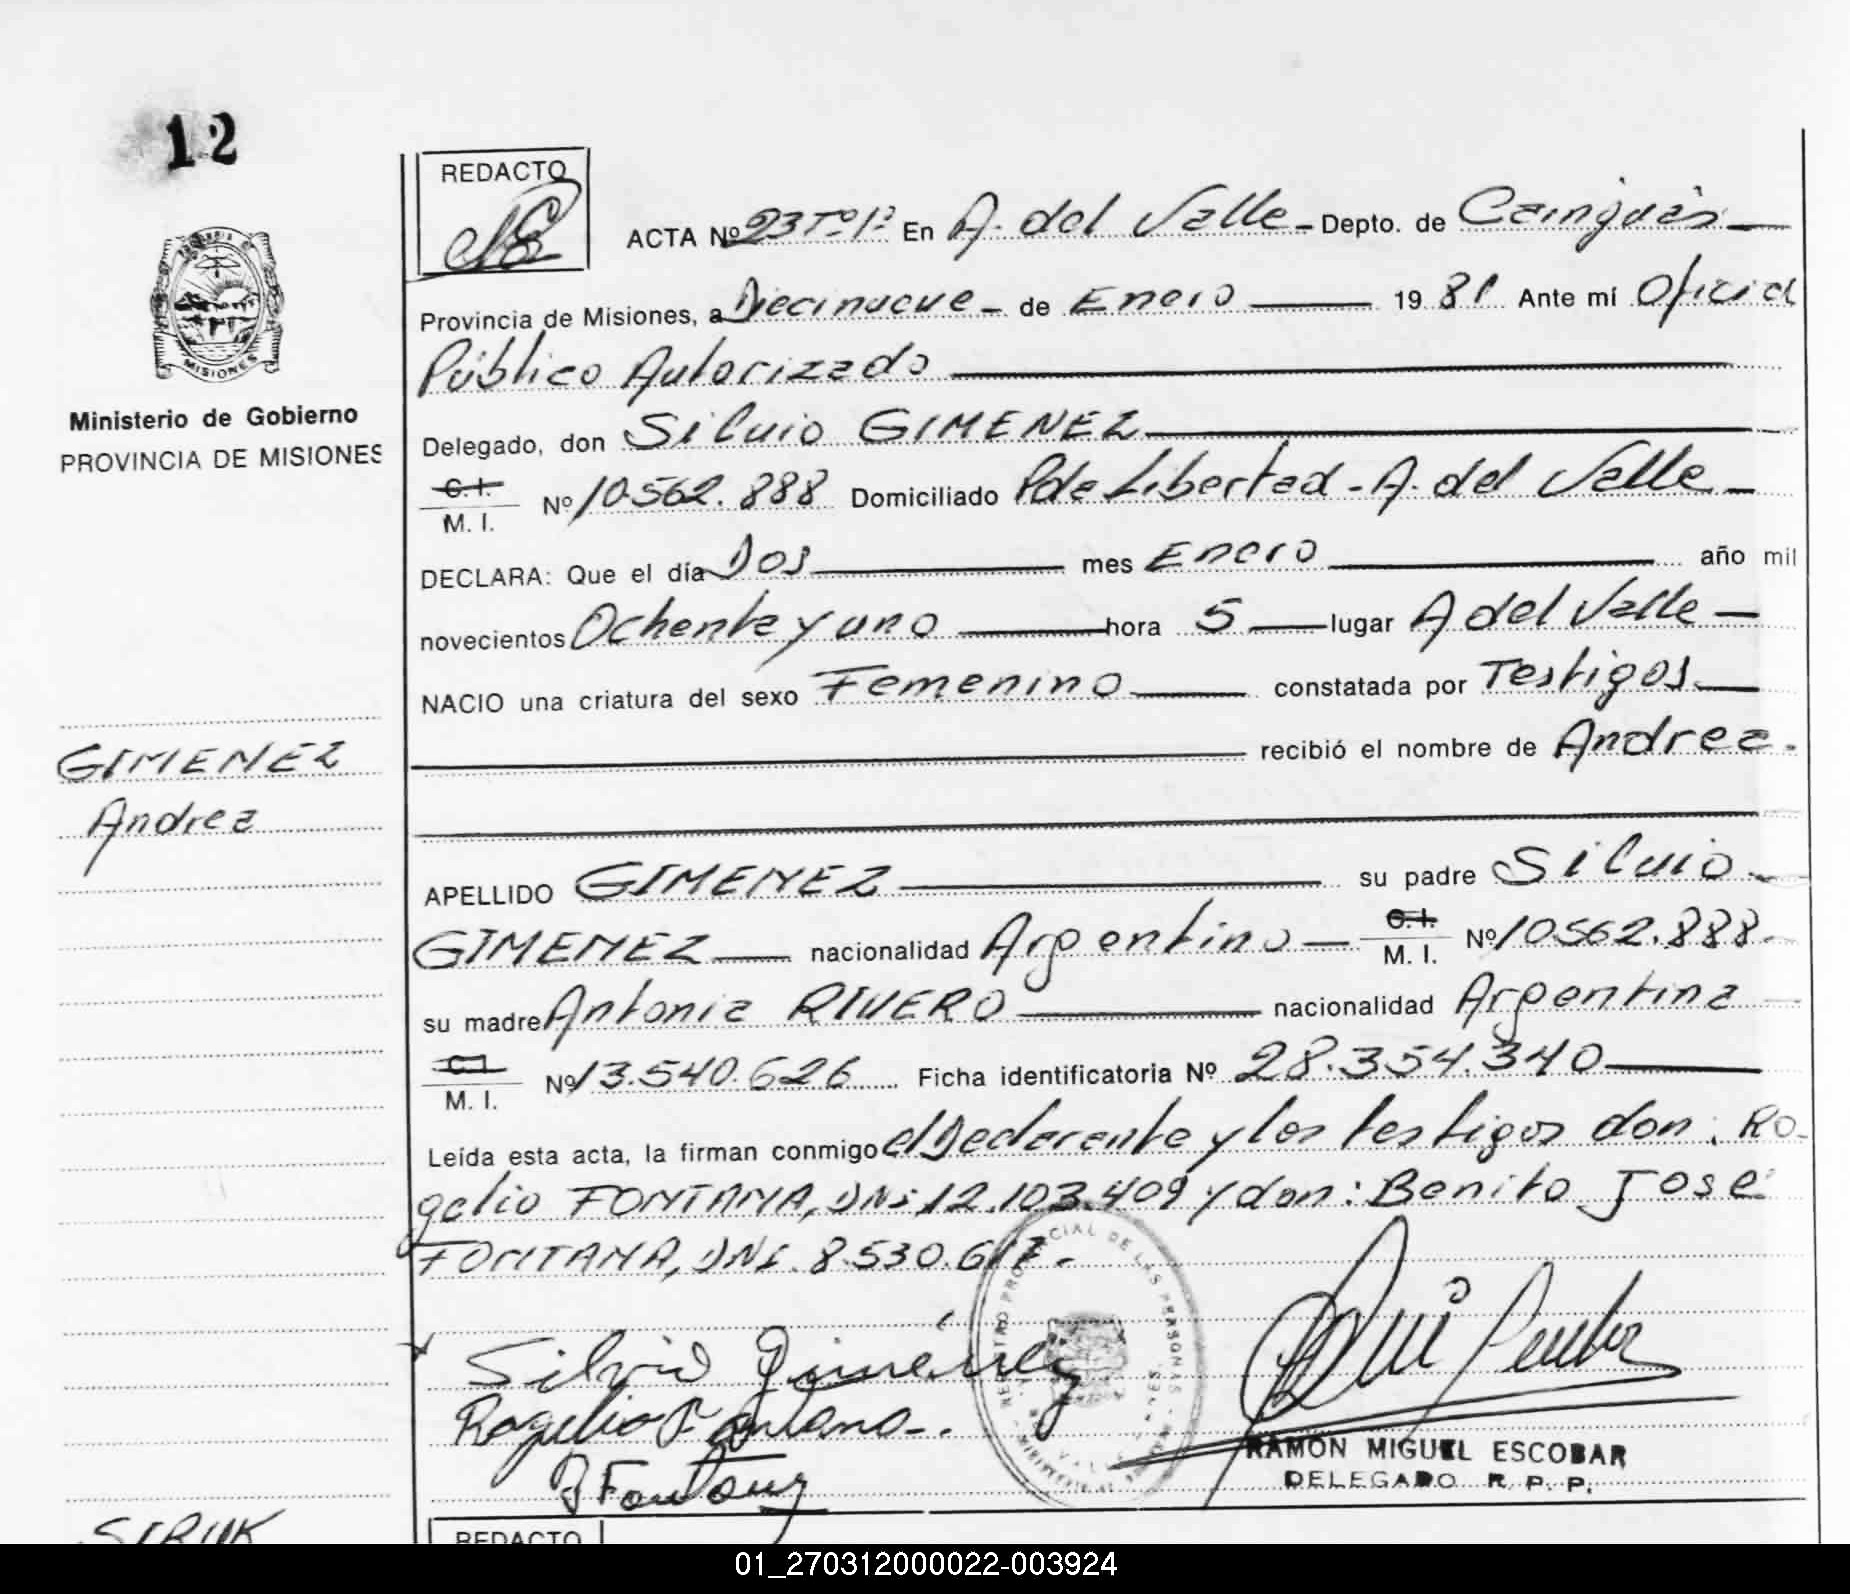 12
REDACTO
ACTA Nº 23 Tº 1º En A. del Valle - Depto. de Cainguàs
Provincia de Misiones, a Diecinueve - de Enero 19 81 Ante mí Oficial
Público Autorizado
MISIONES
Ministerio de Gobierno
PROVINCIA DE MISIONES
Delegado, don Silvio GIMENEZ
C.I.
M. I. Nº 10.562.888 Domiciliado Pde Libertad - A. del Valle
DECLARA: Que el día Dos mes Enero año mil
novecientos Ochenta y uno hora 5 lugar A del Valle
NACIO una criatura del sexo Femenino constatada por Testigos
recibió el nombre de Andrea.
GIMENEZ
Andrea
APELLIDO GIMENEZ su padre Silvio
GIMENEZ nacionalidad Argentino C.I. M. I. Nº 10562.888
su madre Antonia RIVERO nacionalidad Argentina
C.I.
M. I. Nº 13.540.626 Ficha identificatoria Nº 28.354.340
Leída esta acta, la firman conmigo el Declarante y los testigos don: Ro-
gelio FONTANA, DNI 12.103.409 y don: Benito José
FONTANA, DNI. 8.530.617.-
REGISTRO PROVINCIAL DE LAS PERSONAS
Silvio Giménez
Rogelio Fontana-.
B Fontana
RAMON MIGUEL ESCOBAR
DELEGADO R. P. P.
REDACTO
01_270312000022-003924